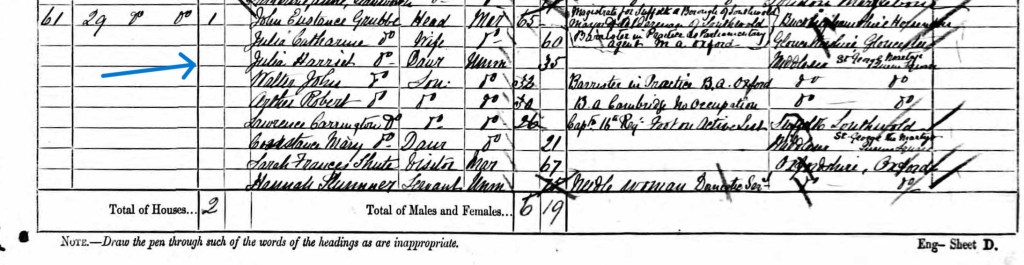 61 29 do do 1 John Eustace Grubbe Head Mar 65 Magistrate for Suffolk & Borough of Southwold
Mayor & Alderman of Southwold
Barrister in Practice & Parliamentary
agent M.A. Oxford
Julia Catharine do Wife do 60 Gloucestershire Gloucester
Julia Harriet do Daur Unm 35 Middlesex St George Martyr Queen Square
Walter John do Son do 32 Barrister in Practice B.A. Oxford do do
Arthur Robert do do do 30 B.A Cambridge No Occupation do do
Lawrence Carrington do do do 26 Captn 16th Regt Foot on Active List Suffolk Southwold
Constance Mary do Daur do 21 Middlesex St George the Martyr Queen Square
Sarah Frances Shute Visitor Mar 67 Oxfordshire, Oxford
Hannah Servant Unm Needle woman Domestic Servt do do
Total of Houses... 2 Total of Males and Females... 6 19
NOTE.—Draw the pen through such of the words of the headings as are inappropriate. Eng— Sheet D.